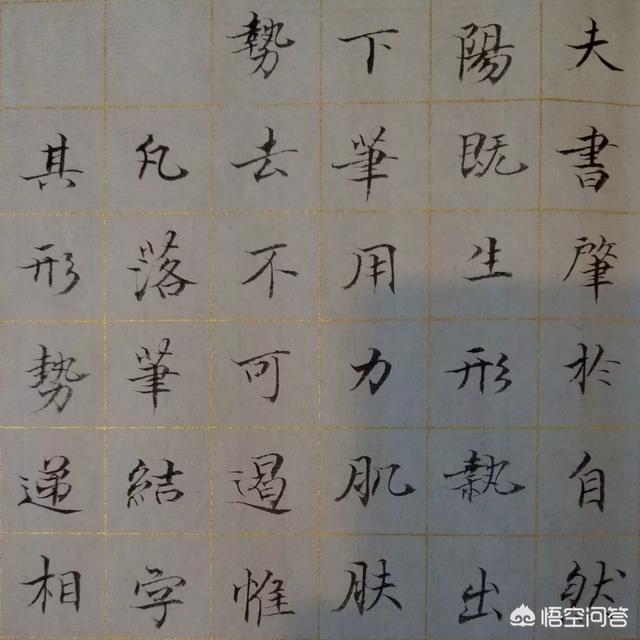 夫書肇於自然
陽既生形執出
下筆用力肌膚
勢去不可遏惟
凡落筆結字
其形勢递相
悟空问答